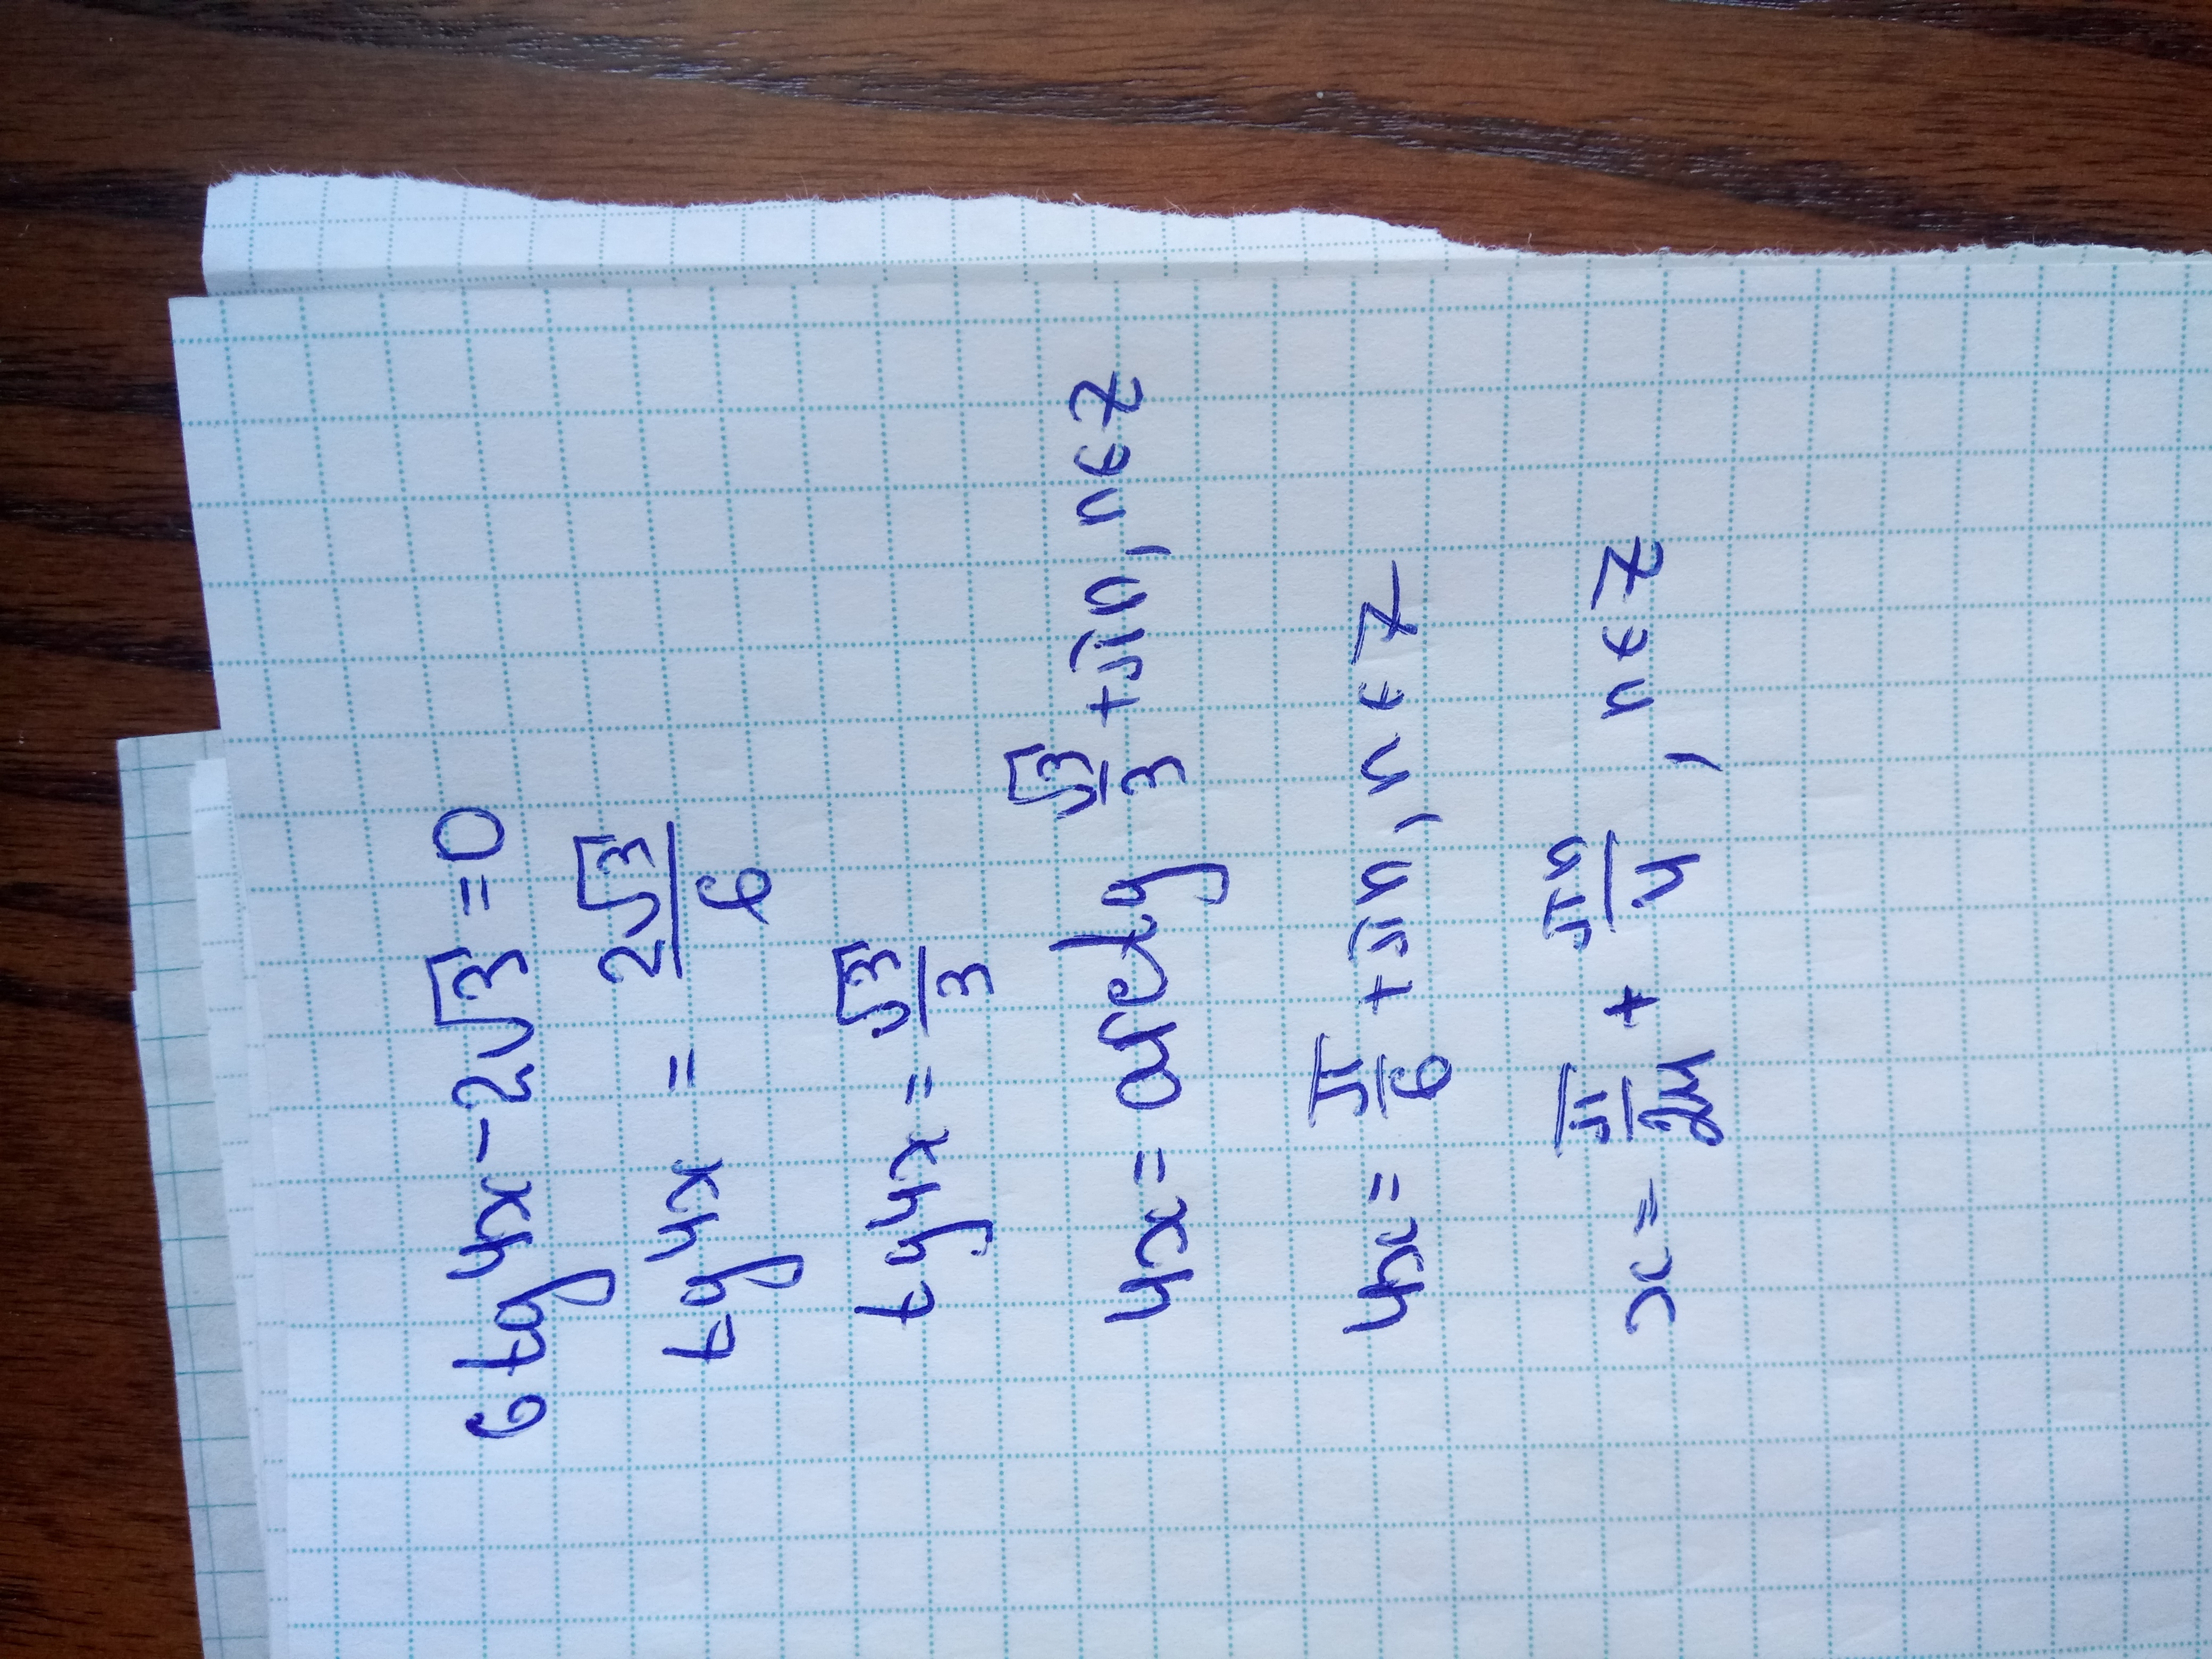 6 tg 4x - 2√3 = 0
tg 4x = 2√3/6
tg 4x = √3/3
4x = arctg √3/3 + πn, n ∈ Z
4x = π/6 + πn, n ∈ Z
x = π/24 + πn/4, n ∈ Z